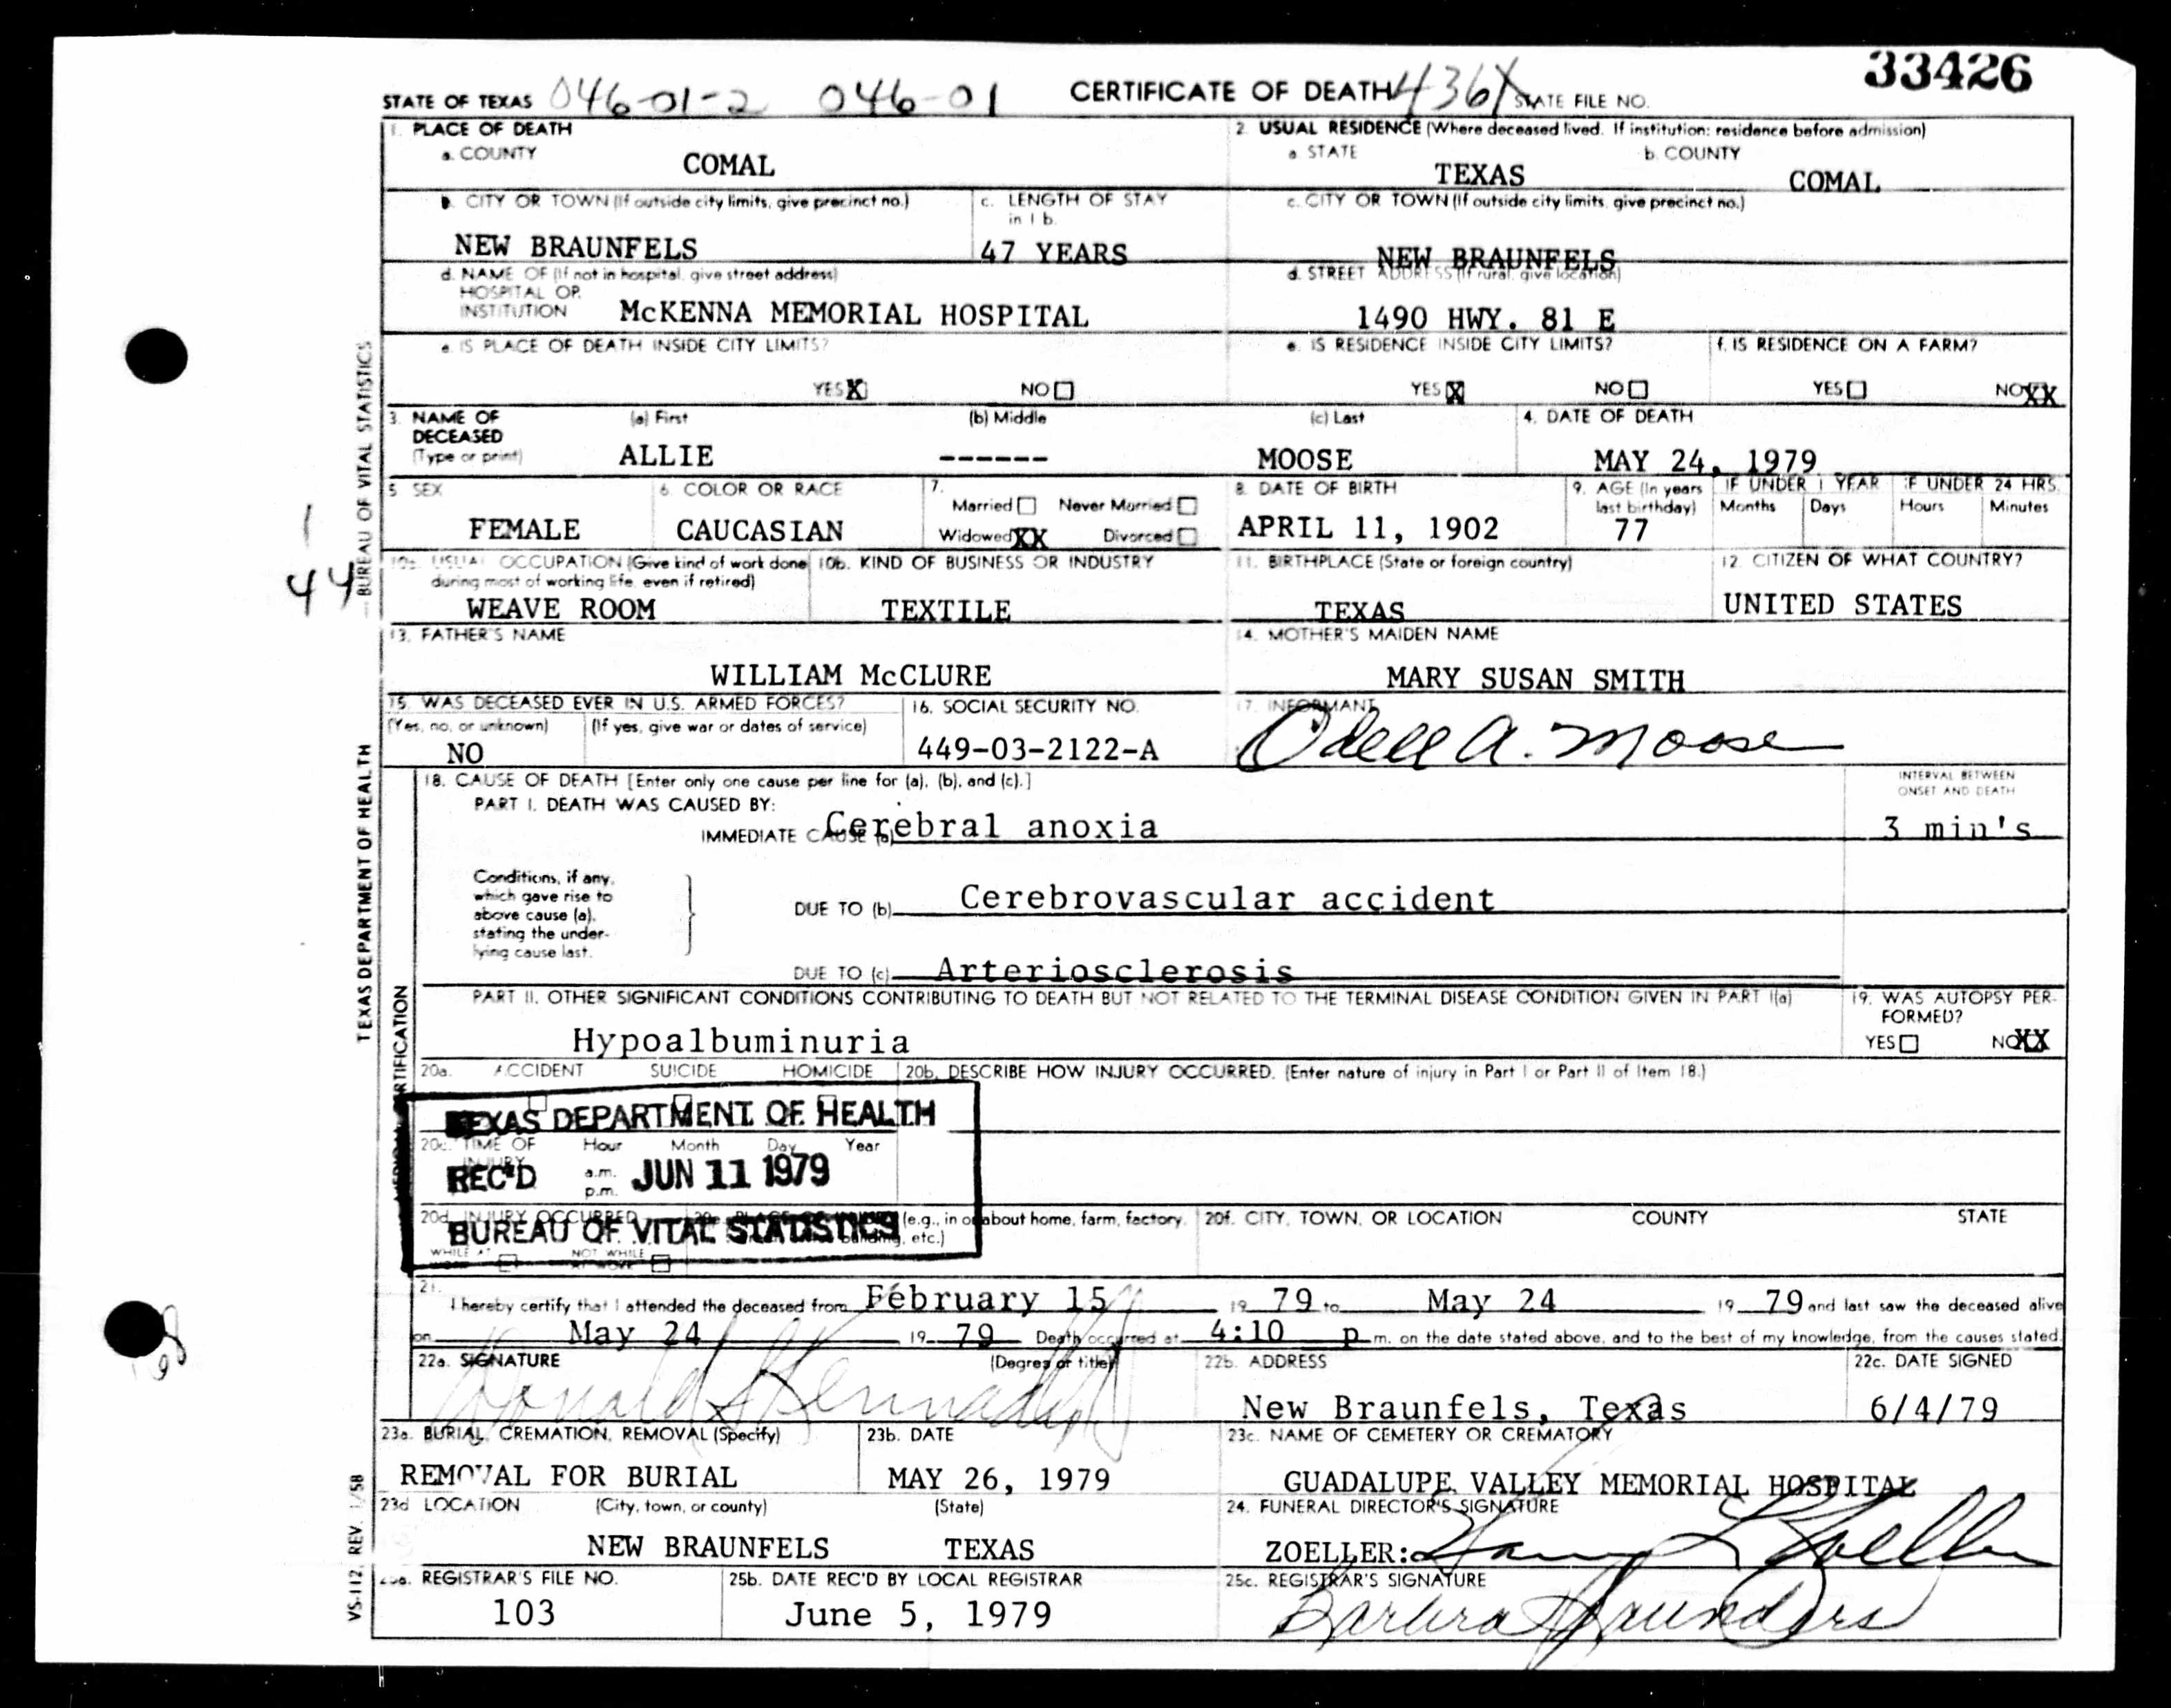 33426
STATE OF TEXAS 046-01-2 046-01 CERTIFICATE OF DEATH 436X STATE FILE NO.
1. PLACE OF DEATH
a. COUNTY COMAL
2. USUAL RESIDENCE (Where deceased lived. If institution: residence before admission)
a. STATE TEXAS b. COUNTY COMAL
b. CITY OR TOWN (If outside city limits, give precinct no.) NEW BRAUNFELS
c. LENGTH OF STAY in 1 b. 47 YEARS
c. CITY OR TOWN (If outside city limits, give precinct no.) NEW BRAUNFELS
d. NAME OF (If not in hospital, give street address)
HOSPITAL OR
INSTITUTION McKENNA MEMORIAL HOSPITAL
d. STREET ADDRESS (If rural, give location) 1490 HWY. 81 E
e. IS PLACE OF DEATH INSIDE CITY LIMITS?
YES X NO
e. IS RESIDENCE INSIDE CITY LIMITS?
YES X NO
f. IS RESIDENCE ON A FARM?
YES NO XX
3. NAME OF DECEASED (Type or print)
(a) First ALLIE (b) Middle ------ (c) Last MOOSE
4. DATE OF DEATH MAY 24, 1979
5. SEX FEMALE
6. COLOR OR RACE CAUCASIAN
7. Married Never Married
Widowed XX Divorced
8. DATE OF BIRTH APRIL 11, 1902
9. AGE (In years last birthday) 77
IF UNDER 1 YEAR Months Days
IF UNDER 24 HRS. Hours Minutes
10a. USUAL OCCUPATION (Give kind of work done during most of working life, even if retired) WEAVE ROOM
10b. KIND OF BUSINESS OR INDUSTRY TEXTILE
11. BIRTHPLACE (State or foreign country) TEXAS
12. CITIZEN OF WHAT COUNTRY? UNITED STATES
13. FATHER'S NAME WILLIAM McCLURE
14. MOTHER'S MAIDEN NAME MARY SUSAN SMITH
15. WAS DECEASED EVER IN U.S. ARMED FORCES?
(Yes, no, or unknown) NO (If yes, give war or dates of service)
16. SOCIAL SECURITY NO. 449-03-2122-A
17. INFORMANT Odell A. Moose
18. CAUSE OF DEATH [Enter only one cause per line for (a), (b), and (c).]
INTERVAL BETWEEN ONSET AND DEATH
PART I. DEATH WAS CAUSED BY:
IMMEDIATE CAUSE (a) Cerebral anoxia 3 min's
Conditions, if any, which gave rise to above cause (a), stating the underlying cause last.
DUE TO (b) Cerebrovascular accident
DUE TO (c) Arteriosclerosis
PART II. OTHER SIGNIFICANT CONDITIONS CONTRIBUTING TO DEATH BUT NOT RELATED TO THE TERMINAL DISEASE CONDITION GIVEN IN PART I(a)
Hypoalbuminuria
19. WAS AUTOPSY PERFORMED?
YES NO XX
20a. ACCIDENT SUICIDE HOMICIDE
20b. DESCRIBE HOW INJURY OCCURRED. (Enter nature of injury in Part I or Part II of Item 18.)
TEXAS DEPARTMENT OF HEALTH
20c. TIME OF INJURY Hour Month Day Year
a.m.
p.m.
REC'D JUN 11 1979
20d. INJURY OCCURRED
WHILE AT WORK NOT WHILE AT WORK
(e.g., in or about home, farm, factory, building, etc.)
BUREAU OF VITAL STATISTICS
20f. CITY, TOWN, OR LOCATION COUNTY STATE
21. I hereby certify that I attended the deceased from February 15 19 79 to May 24 19 79 and last saw the deceased alive
on May 24 19 79 Death occurred at 4:10 p m. on the date stated above, and to the best of my knowledge, from the causes stated.
22a. SIGNATURE (Degree or title) Donald Kennady
22b. ADDRESS New Braunfels, Texas
22c. DATE SIGNED 6/4/79
23a. BURIAL, CREMATION, REMOVAL (Specify) REMOVAL FOR BURIAL
23b. DATE MAY 26, 1979
23c. NAME OF CEMETERY OR CREMATORY GUADALUPE VALLEY MEMORIAL HOSPITAL
23d. LOCATION (City, town, or county) (State) NEW BRAUNFELS TEXAS
24. FUNERAL DIRECTOR'S SIGNATURE ZOELLER: Zoeller
25a. REGISTRAR'S FILE NO. 103
25b. DATE REC'D BY LOCAL REGISTRAR June 5, 1979
25c. REGISTRAR'S SIGNATURE Barbra Saunders
BUREAU OF VITAL STATISTICS
TEXAS DEPARTMENT OF HEALTH
MEDICAL CERTIFICATION
VS-112, REV. 1/58
1
44